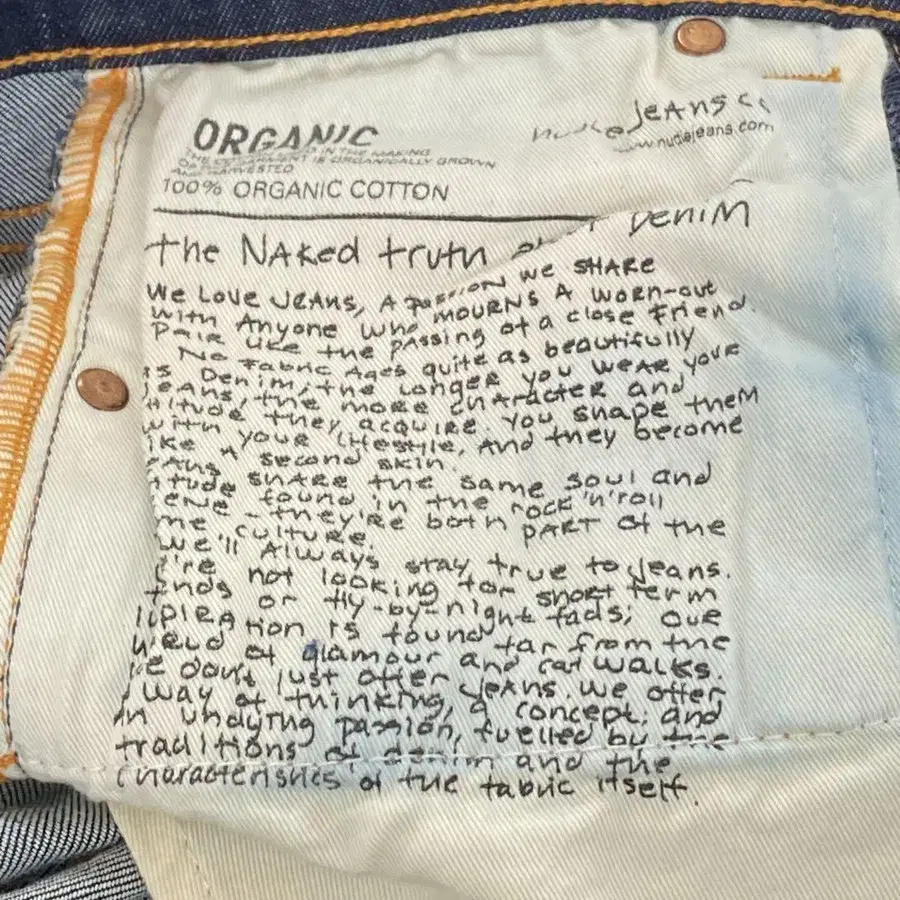 ORGANIC
IN THE MAKING
IS ORGANICALLY GROWN
HARVESTED
100% ORGANIC COTTON
JEANS C
www.nudiejeans.com
the NAKED truth DENIM
WE LOVE JEANS, A PASSION WE SHARE
WITH ANYONE WHO MOURNS A WORN-OUT
PAIR LIKE the PASSING of a close FRIEND.
NO FABRIC AGES quite as beautifully
as DENIM, the LONGER YOU WEAR YOUR
JEANS, the MORE CHARACTER AND
they ACQUIRE. YOU SHAPE theM
WITH YOUR lifestyle, AND they become
A second skin.
SHARE the same soul and
found in the ROCK'n'roll
they're both PART of the
CULTURE.
we'll Always stay true to Jeans.
're not looking for short term
or fly-by-night fads; our
is found far from the
of glamour and catwalks.
don't just offer Jeans. we offer
way of thinking, a concept, and
An undying passion, fuelled by the
traditions of denim and the
characteristics of the fabric itself.